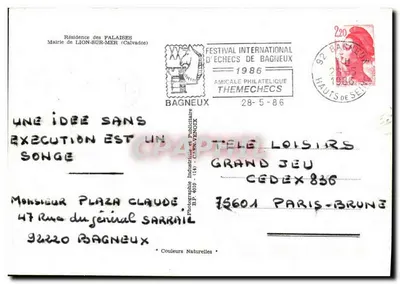 Résidence des FALAISES
Mairie de LION-SUR-MER (Calvados)
FESTIVAL INTERNATIONAL
D'ECHECS DE BAGNEUX
1986
AMICALE PHILATELIQUE
THEMECHECS
BAGNEUX
28-5-86
2,20
92 BAGNEUX
1986
HAUTS DE SEINE
UNE IDEE SANS
EXECUTION EST UN
SONGE
MONSIEUR PLAZA CLAUDE
47 RUE du général SARRAIL
92220 BAGNEUX
TELE LOISIRS
GRAND JEU
CEDEX 836
75601 PARIS-BRUNE
"Couleurs Naturelles"